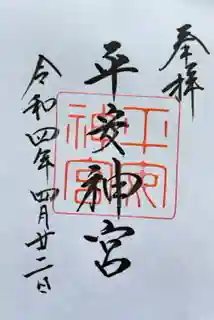 奉拝
平安神宮
令和四年四月廿二日
平安神宮